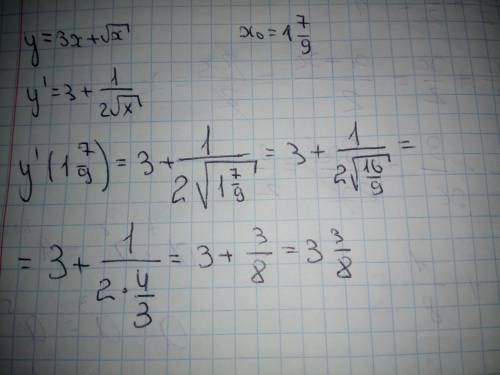 y = 3x + √x    x₀ = 1 7/9
y' = 3 + 1/(2√x)
y'(1 7/9) = 3 + 1/(2√(1 7/9)) = 3 + 1/(2√(16/9)) =
= 3 + 1/(2·4/3) = 3 + 3/8 = 3 3/8